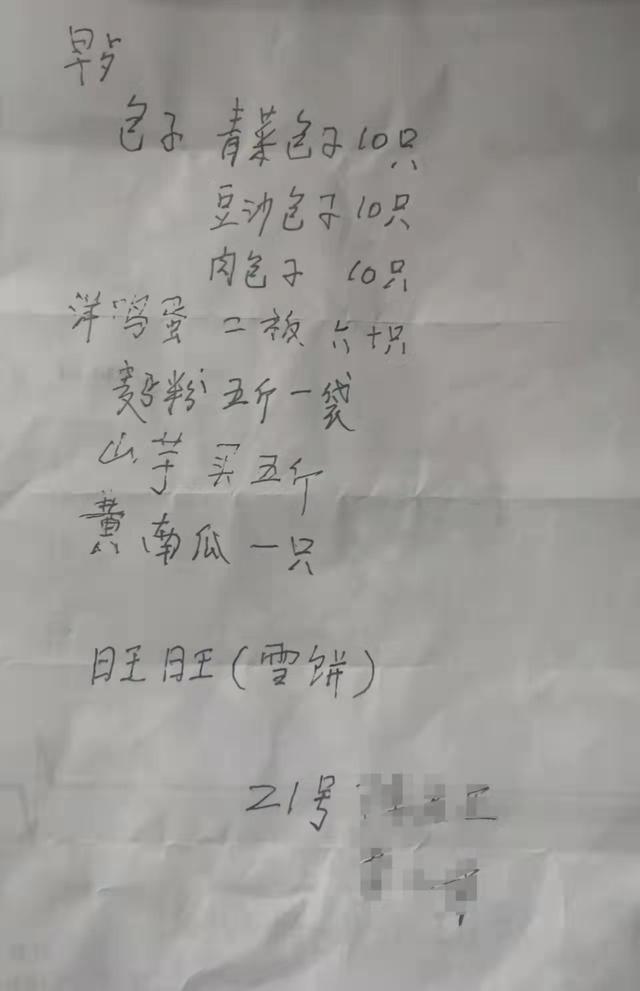 早
包子 青菜包子10只
豆沙包子10只
肉包子 10只
洋鸡蛋 二板 六十只
粉 五斤一袋
山芋 买五斤
黄南瓜一只
旺旺(雪饼)
21号